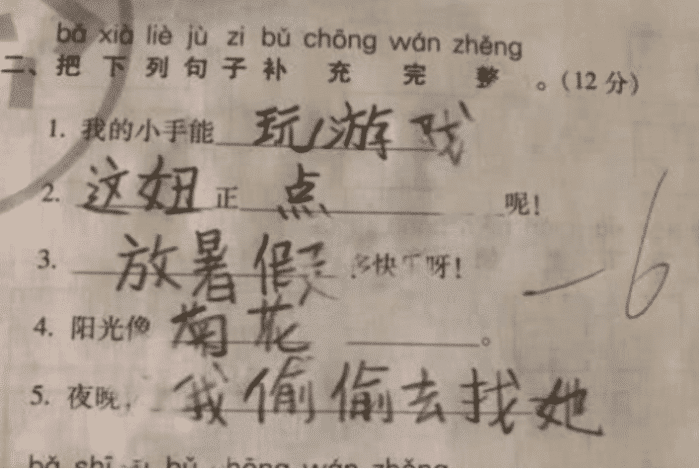 bǎ xià liè jù zi bǔ chōng wán zhěng
二、把下列句子补充完整。(12分)
1. 我的小手能玩游戏
2. 这妞正点呢!
3. 放暑假多快乐呀!
4. 阳光像菊花。
5. 夜晚，我偷偷去找她
-6